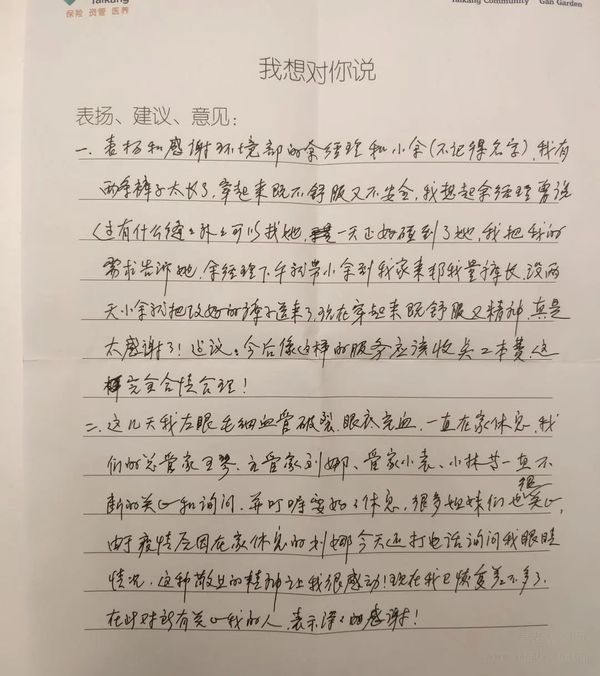 Taikang
保险 资管 医养
Taikang Community Gan Garden
我想对你说
表扬、建议、意见：
一. 表扬和感谢环境部的余经理和小余(不记得名字),我有
两条裤子太长了,穿起来既不舒服又不安全,我想起余经理曾说
过有什么缝缝补补可以找她,一天正好碰到了她,我把我的
需求告诉她,余经理下午就带小余到我家来帮我量裤长,没两
天小余就把改好的裤子送来了,现在穿起来既舒服又精神,真是
太感谢了! 建议:今后像这样的服务应该收点工本费,这
样完全合情合理!
二. 这几天我左眼毛细血管破裂,眼底充血,一直在家休息,我
们的总管家王琴、主管家刘娜、管家小袁、小林等一直不
断的关心和询问,并叮嘱要好好休息,很多姐妹们也很关心,
由于疫情原因在家休息的刘娜今天还打电话询问我眼睛
情况,这种敬业的精神让我很感动!现在我已恢复差不多了,
在此对所有关心我的人,表示深深的感谢!